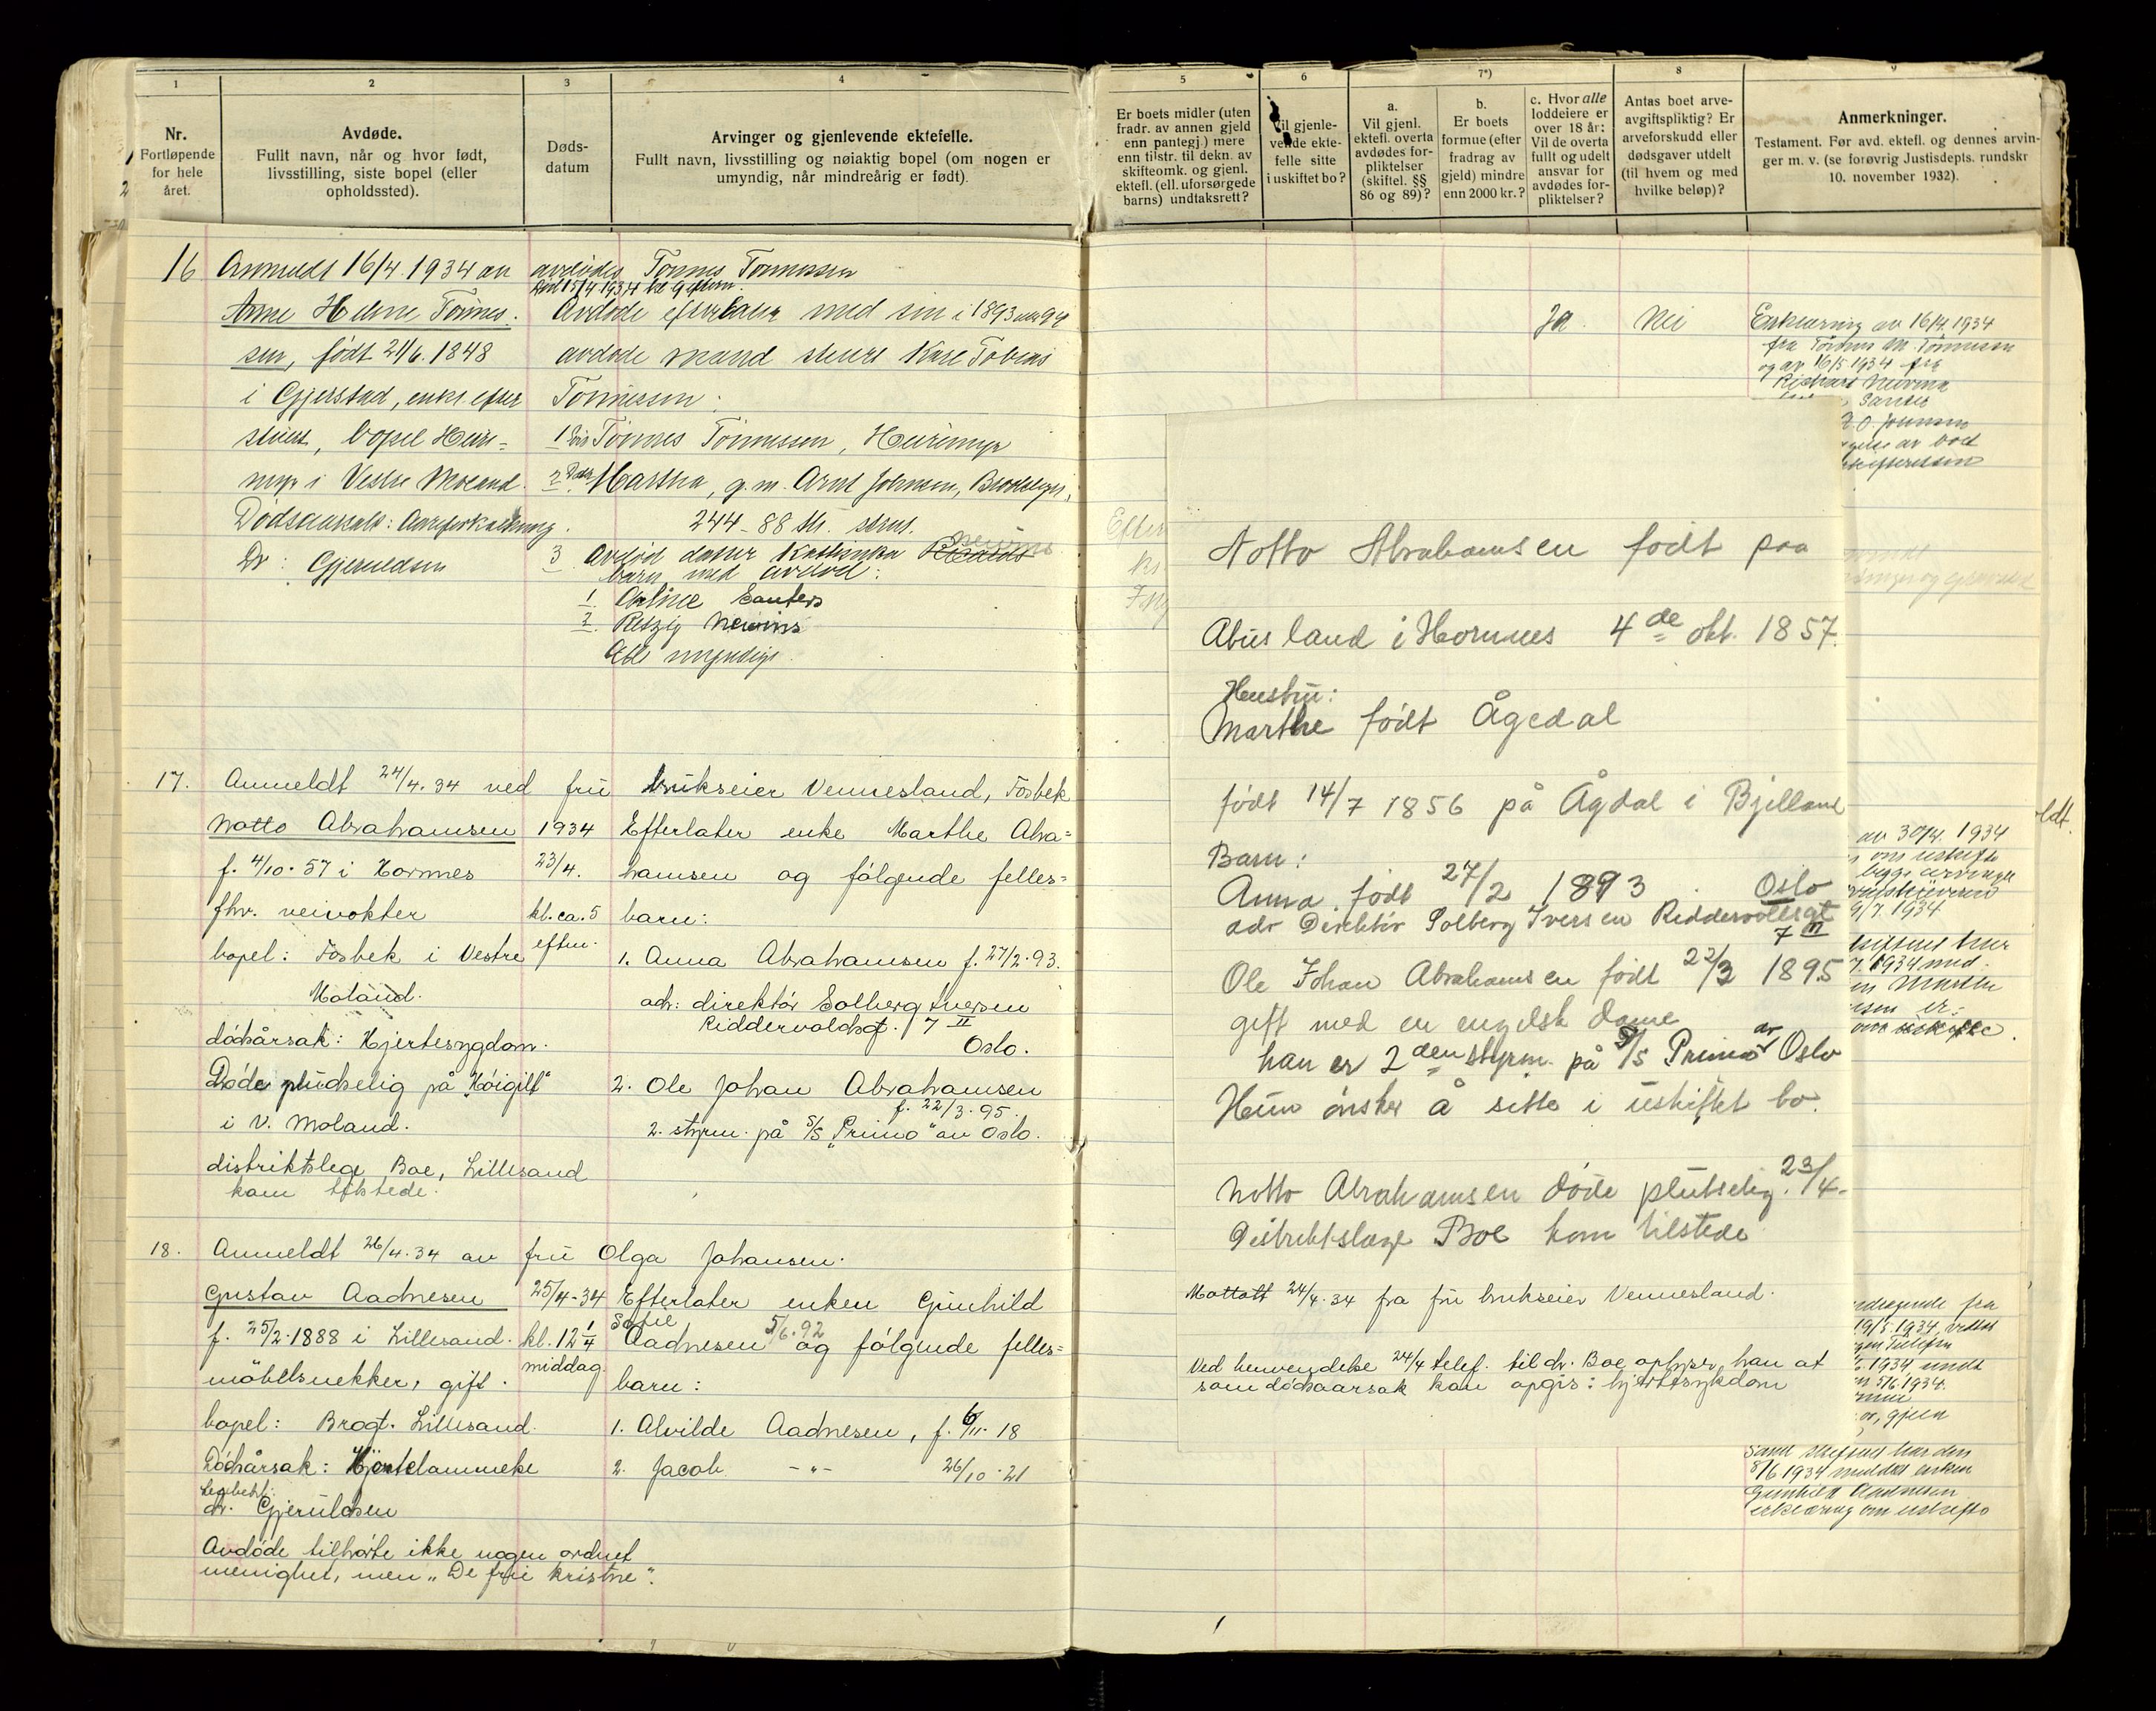 1
Nr.
Fortløpende
for hele
året.
2
Avdøde.
Fullt navn, når og hvor født,
livsstilling, siste bopel (eller
opholdssted).
3
Døds-
datum
4
Arvinger og gjenlevende ektefelle.
Fullt navn, livsstilling og nøiaktig bopel (om nogen er
umyndig, når mindreårig er født).
5
Er boets midler (uten
fradr. av annen gjeld
enn pantegj.) mere
enn tilstr. til dekn. av
skifteomk. og gjenl.
ektef. (ell. uforsørgede
barns) undtaksrett?
6
Vil gjenle-
vende ekte-
felle sitte
i uskiftet bo?
7*)
a.
Vil gjenl.
ektefl. overta
avdødes for-
pliktelser
(skiftel. §§
86 og 89)?
b.
Er boets
formue (efter
fradrag av
gjeld) mindre
enn 2000 kr.?
c. Hvor alle
loddeiere er
over 18 år:
Vil de overta
fullt og udelt
ansvar for
avdødes for-
pliktelser?
8
Antas boet arve-
avgiftspliktig? Er
arveforskudd eller
dødsgaver utdelt
(til hvem og med
hvilke beløp)?
9
Anmerkninger.
Testament. Før avd. ektefl. og dennes arvin-
ger m. v. (se forøvrig Justisdepts. rundskr
10. november 1932).
16 Anmeldt 16/4. 1934 av avdødes Tønnes Tønnessen
Død 15/4 1934 kl 9 eftern.
Anne Helene Tønnes- Avdøde efterlater med sin i 1893
sen, født 21/6. 1848 avdøde mand Karl Tobias
i Gjerstad, enke efter Tønnessen:
bopel Hei- 1 Søn Tønnes Tønnessen, Heiremyr
myr i Vestre Moland. 2 Datter Martha, g.m. Arnt Johnsen, Brooklyn,
Dødsaarsak: Aareforkalkning. 244 - 88 Str.
Dr: Gjeruldsen 3 Avdød datter Kathinka Nevins
barn med avdød:
1. Arline Santers
2. Nevins
Alle myndige
Ja. Nei Erklæring av 16/4. 1934
fra Tønnes M. Tønnessen
og av 16/5 1934 fra
17. Anmeldt 24/4. 34 ved fru brukseier Vennesland, Fosbek
Notto Abrahamsen 1934 Efterlater enke Marthe Abra=
f. 4/10. 57 i Hornnes 23/4. hamsen og følgende felles=
fhv. veivokter kl. ca. 5 barn:
bopel: Fosbek i Vestre eftm. 1. Anna Abrahamsen f. 27/2. 93.
Moland. adr: direktör Solberg Iversen
Riddervoldsgt. 7 II
dødsårsak: Hjertesygdom. Oslo.
Døde pludselig på "Höigilt" 2. Ole Johan Abrahamsen
f. 22/3. 95.
i V. Moland. 2. styrm. på S/S "Primo" av Oslo.
distriktslege Boe, Lillesand
kom tilstede.
18. Anmeldt 26/4. 34 av fru Olga Johansen.
Gustav Aadnesen 25/4-34 Efterlater enken Gunhild
Sofie 5/6. 92
f. 25/2. 1888 i Lillesand. kl. 12 1/4 Aadnesen og følgende felles=
middag.
möbelsnekker, gift. barn:
bopel: Brogt. Lillesand. 1. Alvilde Aadnesen, f. 6/11. 18
Dødsårsak: Hjertelammelse 2. Jacob -"- 26/10. 21
Legebeh:
dr. Gjeruldsen
Avdøde tilhørte ikke nogen ordnet
menighet, men "De frie kristne".
Notto Abrahamsen født paa
Abusland i Hornnes 4de okt. 1857.
Hustru:
Marthe født Ågedal
født 14/7 1856 på Ågdal i Bjelland
Barn:
Anna. født 27/2 1893. Oslo
adr Direktör Solberg Iversen Riddervoldsgt
7 II
Ole Johan Abrahamsen født 22/3 1895
gift med en engelsk dame
han er 2den styrm. på S/S Primo av Oslo
Hun ønsker å sitte i uskiftet bo.
Notto Abrahamsen døde plutselig. 23/4-
Distriktslæge Boe kom tilstede
Mottatt 24/4. 34 fra fru brukseier Vennesland.
Ved henvendelse 24/4 telef. til dr. Boe oplyser han at
som dødsaarsak kan opgis: hjertesykdom
av 30/4. 1934
om uskifte
begge arvinger
9/7. 1934
1934 med-
Marthe
er-
uskifte.
fra
19/5 1934
1934
5/6. 1934.
gjeld
har den
8/6 1934 meddelt enken
Gunhild Aadnesen
erklæring om uskifte